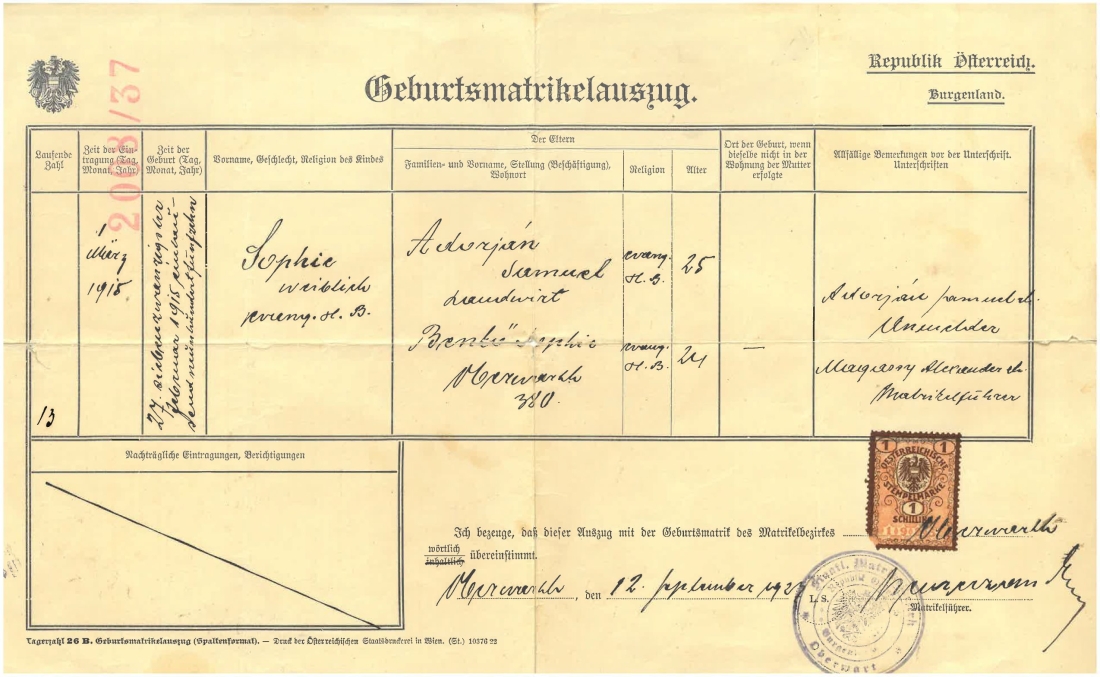 Republik Österreich.
Burgenland.
Geburtsmatrikelauszug.
2003/37
Laufende Zahl
Zeit der Ein-
tragung (Tag,
Monat, Jahr)
Zeit der
Geburt (Tag,
Monat, Jahr)
Vorname, Geschlecht, Religion des Kindes
Der Eltern
Familien- und Vorname, Stellung (Beschäftigung),
Wohnort
Religion
Alter
Ort der Geburt, wenn
dieselbe nicht in der
Wohnung der Mutter
erfolgte
Allfällige Bemerkungen vor der Unterschrift.
Unterschriften
13
1
März
1915
27. siebenzwanzigster
Februar 1915 eintau-
send neunhundertfünfzehn
Sophie
weiblich
evang. H. B.
Adorján
Samuel
Landwirt
evang.
H. B.
25
Benkö Sophie
Oberwarth
380.
evang.
H. B.
24
—
Adorján Samuel
Anmelder
Alexander
Matrikelführer
Nachträgliche Eintragungen, Berichtigungen
1 1
OESTERREICHISCHE
STEMPELMARKE
1
SCHILLING
Ich bezeuge, daß dieser Auszug mit der Geburtsmatrik des Matrikelbezirkes Oberwarth
wörtlich
inhaltlich
übereinstimmt.
Oberwarth, den 12. September
L. S.
Matrikelführer.
Oberwart
Tagerzahl 26 B. Geburtsmatrikelauszug (Spaltenformat). — Druck der Österreichischen Staatsdruckerei in Wien. (St.) 10376 22